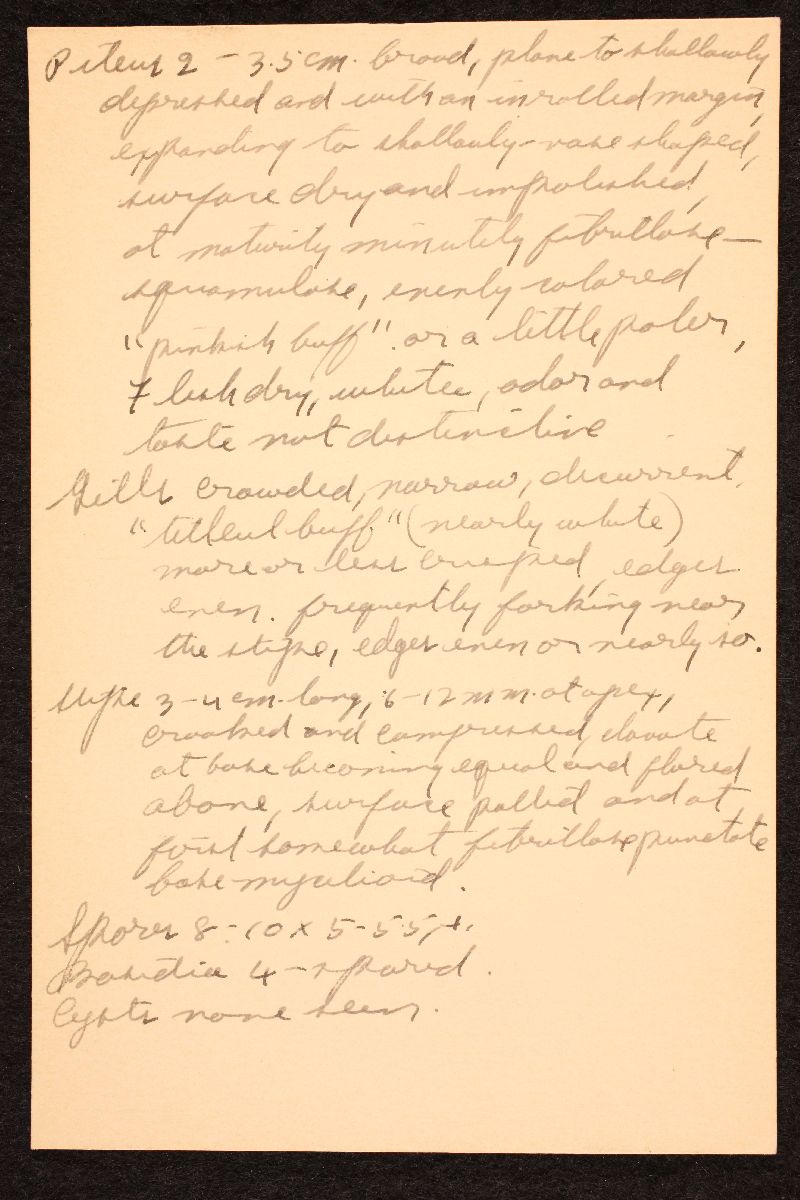 Pileus 2 - 3.5 cm. broad, plane to shallowly
depressed and with an inrolled margin,
expanding to shallowly-vase shaped,
surface dry and unpolished,
at maturity minutely fibrillose-
squamulose, evenly colored
"pinkish buff" or a little paler,
Flesh dry, white, odor and
taste not distinctive
Gills crowded, narrow, decurrent,
"tilleul buff" (nearly white)
more or less crisped, edges
even. frequently forking near
the stipe, edges even or nearly so.
Stipe 3-4 cm. long, 6-12 mm. at apex,
crooked and compressed, clavate
at base becoming equal and flared
above, surface pallid and at
first somewhat fibrillose punctate
base mycelioid.
Spores 8-10 x 5-5.5 µ.
Basidia 4-spored.
Cysts none seen.